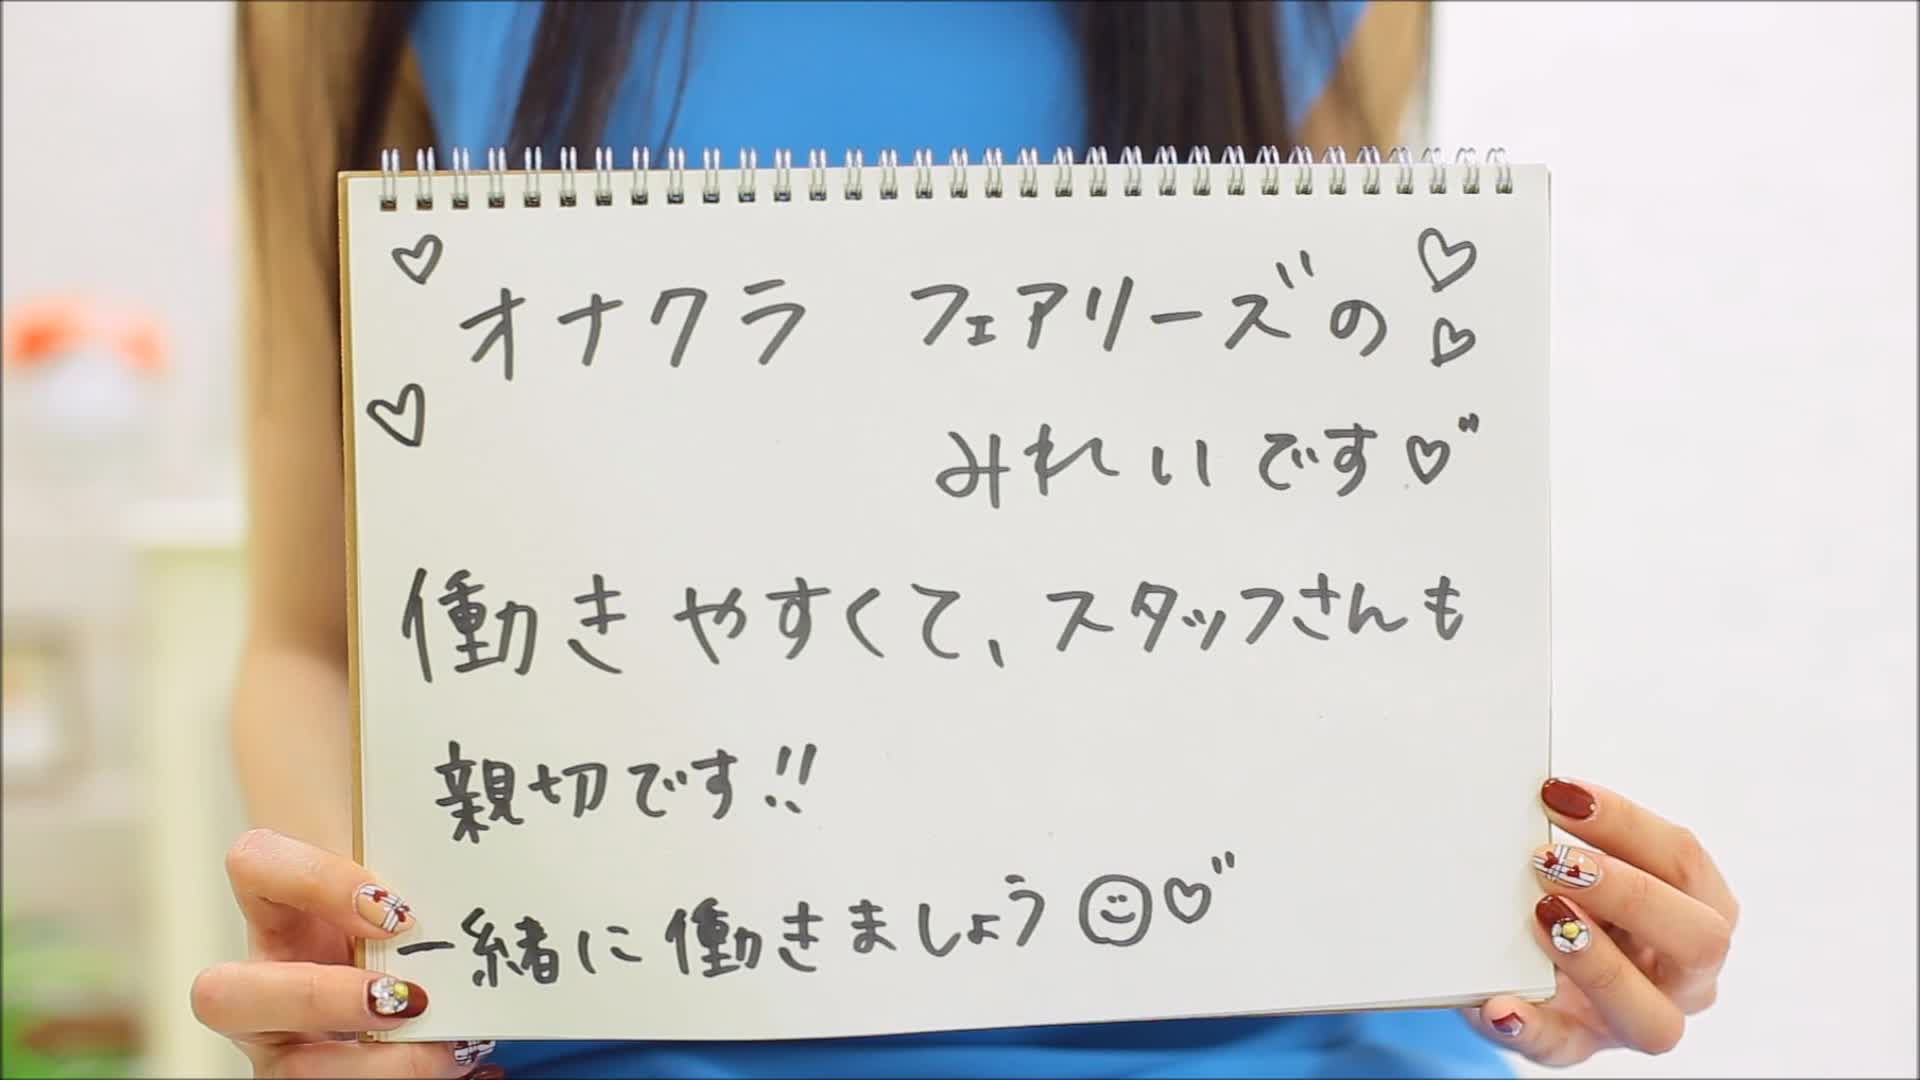 オナクラ フェアリーズの
みれいです♡"
働きやすくて、スタッフさんも
親切です!!
一緒に働きましょう☺♡"